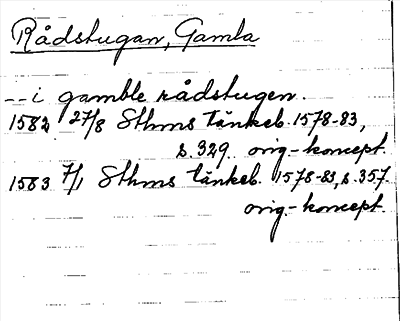 Rådstugan, Gamla
-- i gamble rådstugen.
1582 27/8 Sthms tänkeb. 1578-83,
s. 329. orig-koncept.
1583 7/1 Sthms tänkeb. 1578-83, s. 357.
orig.-koncept.